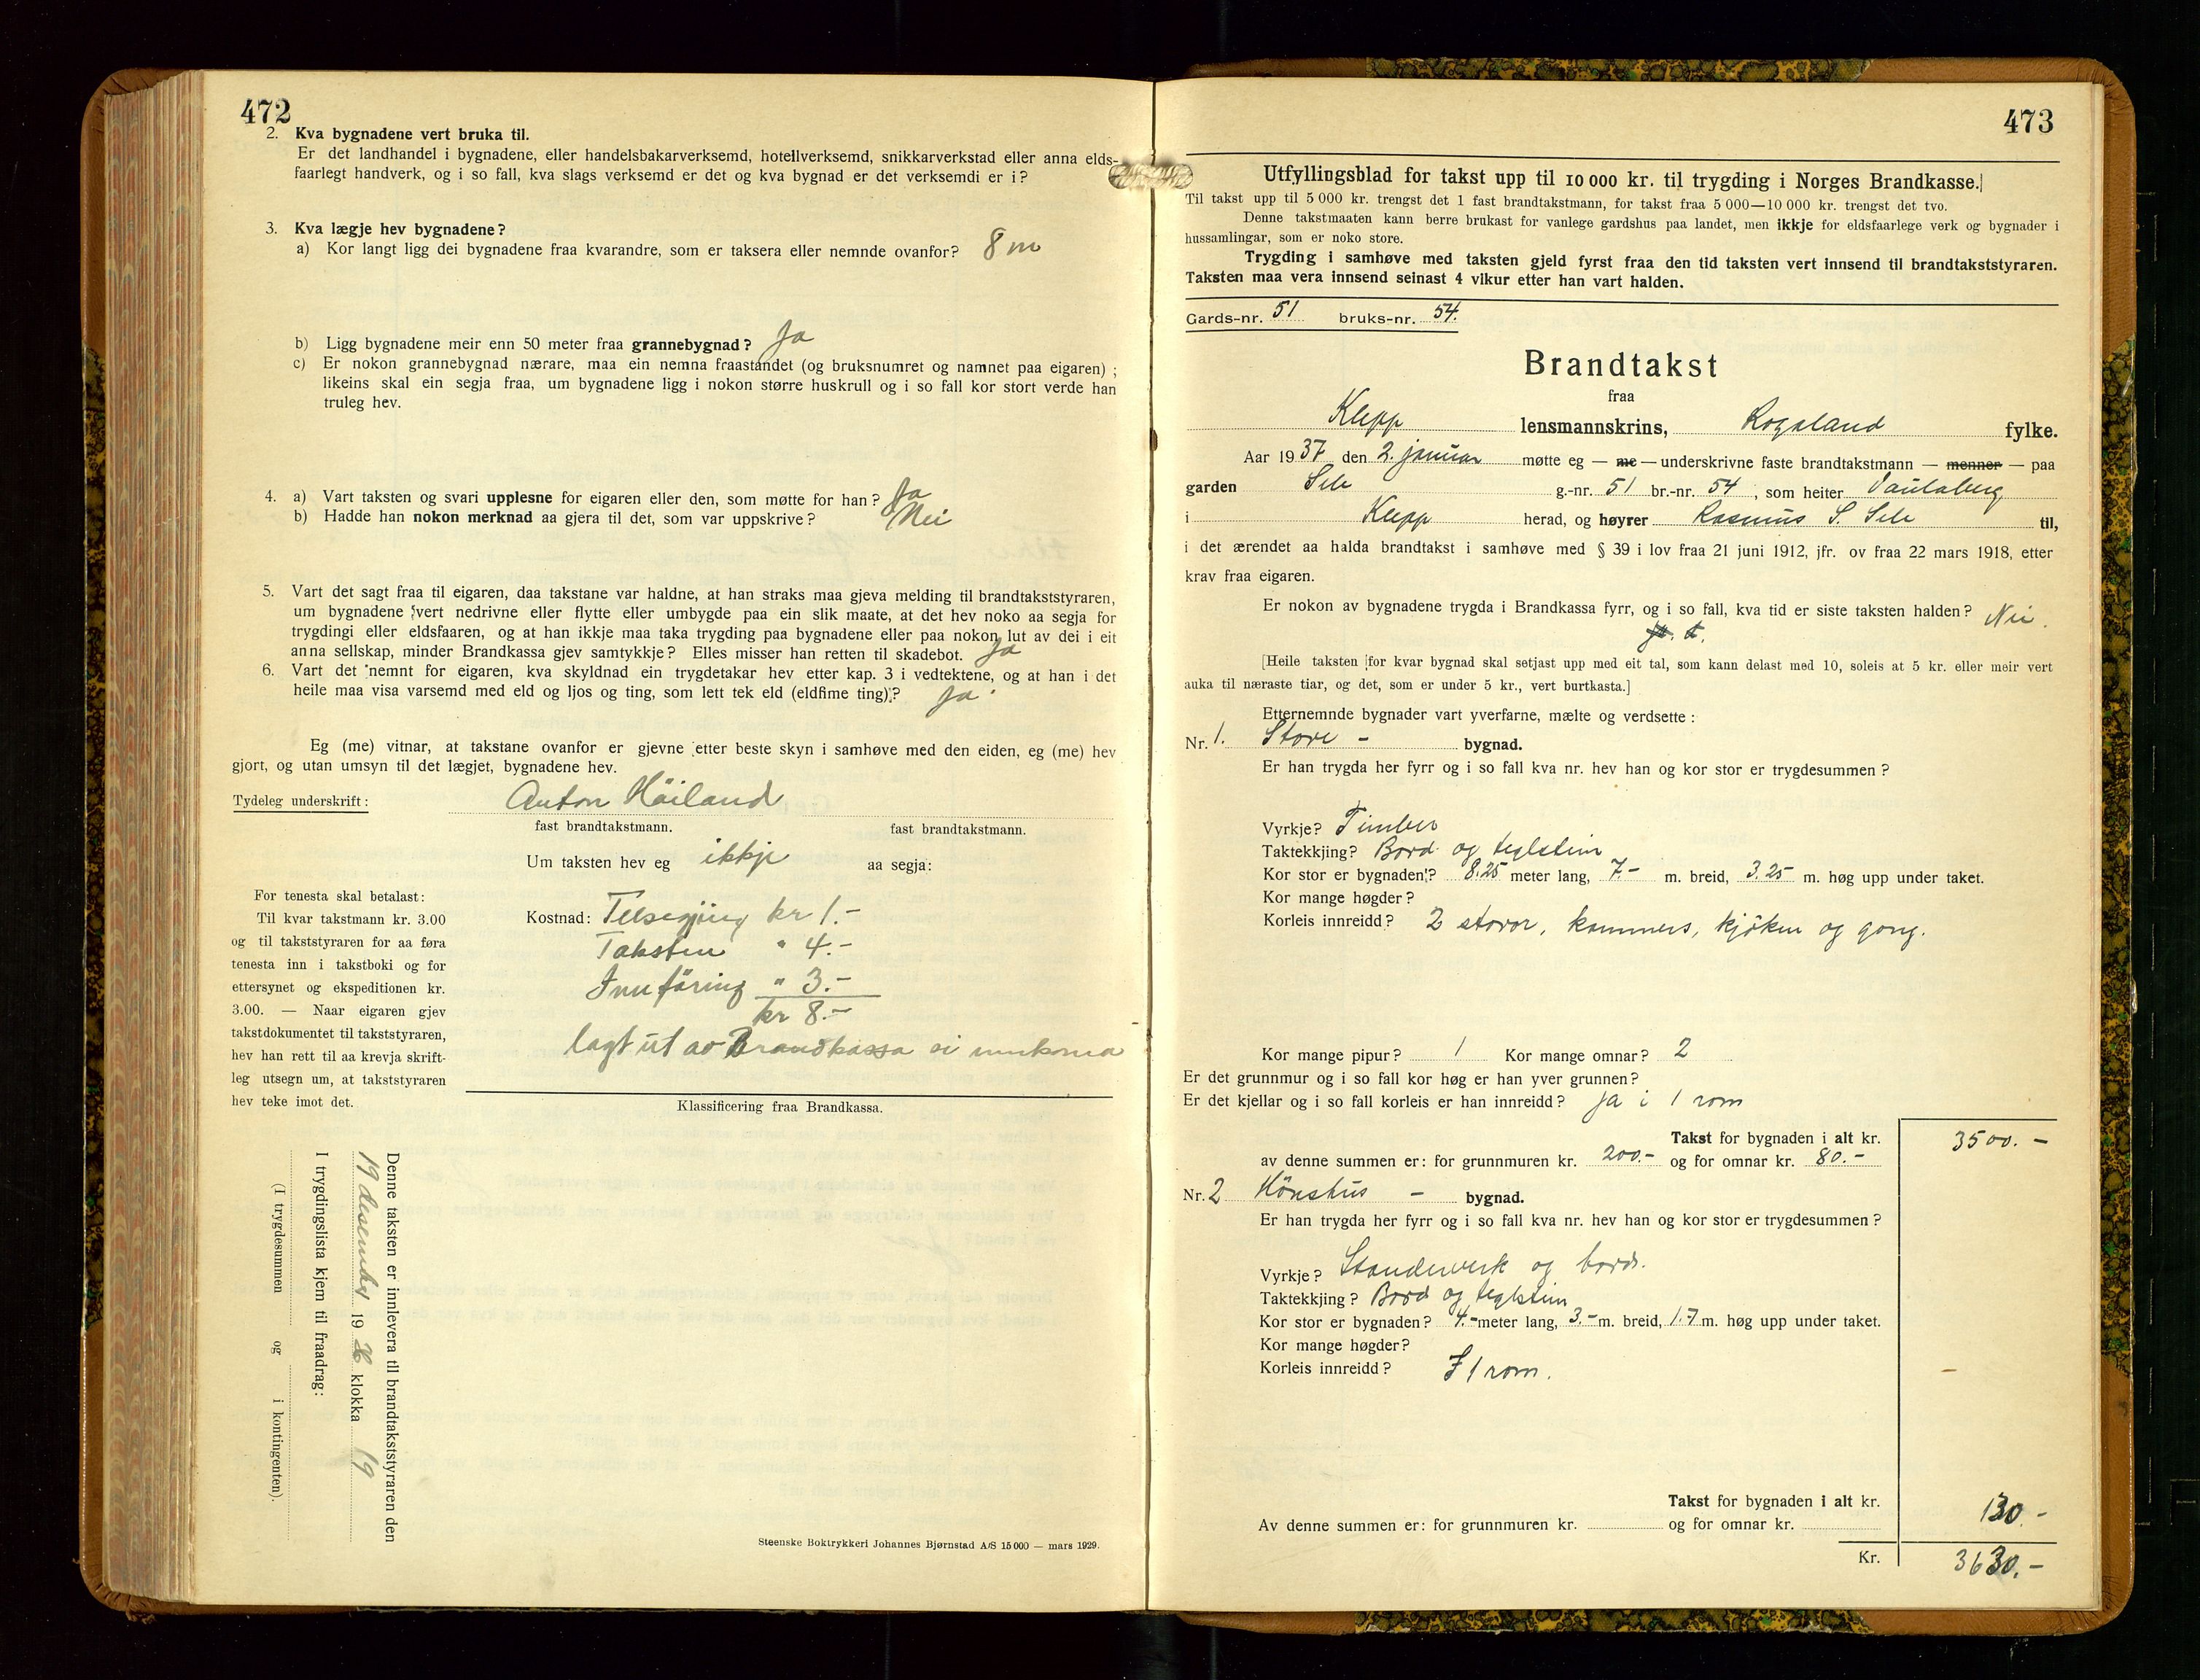 472
2. Kva bygnadene vert bruka til.
Er det landhandel i bygnadene, eller handelsbakarverksemd, hotellverksemd, snikkarverkstad eller anna elds-
faarlegt handverk, og i so fall, kva slags verksemd er det og kva bygnad er det verksemdi er i?
3. Kva lægje hev bygnadene?
a) Kor langt ligg dei bygnadene fraa kvarandre, som er taksera eller nemnde ovanfor? 8 m
b) Ligg bygnadene meir enn 50 meter fraa grannebygnad? Ja
c) Er nokon grannebygnad nærare, maa ein nemna fraastandet (og bruksnumret og namnet paa eigaren) ;
likeins skal ein segja fraa, um bygnadene ligg i nokon større huskrull og i so fall kor stort verde han
truleg hev.
4. a) Vart taksten og svari upplesne for eigaren eller den, som møtte for han? Ja
b) Hadde han nokon merknad aa gjera til det, som var uppskrive? Nei
5. Vart det sagt fraa til eigaren, daa takstane var haldne, at han straks maa gjeva melding til brandtakststyraren,
um bygnadene vert nedrivne eller flytte eller umbygde paa ein slik maate, at det hev noko aa segja for
trygdingi eller eldsfaaren, og at han ikkje maa taka trygding paa bygnadene eller paa nokon lut av dei i eit
anna sellskap, minder Brandkassa gjev samtykkje? Elles misser han retten til skadebot. Ja
6. Vart det nemnt for eigaren, kva skyldnad ein trygdetakar hev etter kap. 3 i vedtektene, og at han i det
heile maa visa varsemd med eld og ljos og ting, som lett tek eld (eldfime ting)? Ja
Eg (me) vitnar, at takstane ovanfor er gjevne etter beste skyn i samhøve med den eiden, eg (me) hev
gjort, og utan umsyn til det lægjet, bygnadene hev.
Tydeleg underskrift: Anton Höiland
fast brandtakstmann. fast brandtakstmann.
Um taksten hev eg ikkje aa segja:
For tenesta skal betalast:
Til kvar takstmann kr. 3.00
og til takststyraren for aa føra
tenesta inn i takstboki og for
ettersynet og ekspeditionen kr.
3.00. — Naar eigaren gjev
takstdokumentet til takststyraren,
hev han rett til aa krevja skrift-
leg utsegn um, at takststyraren
hev teke imot det.
Kostnad: Tilsegjing kr 1.-
Taksten " 4.-
Innföring " 3.-
kr 8.-
lagt ut av Brandkassa ei innkoma
Klassificering fraa Brandkassa.
Denne taksten er innlevera til brandtakststyraren den
19 desember 19 klokka 19
I trygdingslista kjem til fraadrag:
(I trygdesummen og i kontingenten).
Steenske Boktrykkeri Johannes Bjørnstad A/S 15 000 — mars 1929.
473
Utfyllingsblad for takst upp til 10 000 kr. til trygding i Norges Brandkasse.
Til takst upp til 5 000 kr. trengst det 1 fast brandtakstmann, for takst fraa 5 000—10 000 kr. trengst det tvo.
Denne takstmaaten kann berre brukast for vanlege gardshus paa landet, men ikkje for eldsfaarlege verk og bygnader i
hussamlingar, som er noko store.
Trygding i samhøve med taksten gjeld fyrst fraa den tid taksten vert innsend til brandtakststyraren.
Taksten maa vera innsend seinast 4 vikur etter han vart halden.
Gards-nr. 51 bruks-nr. 54.
Brandtakst
fraa
Klepp lensmannskrins, Rogaland fylke.
Aar 1937 den 2. januar møtte eg — me — underskrivne faste brandtakstmann — menner — paa
garden Sele g.-nr. 51 br.-nr. 54, som heiter Paulaberg
i Klepp herad, og høyrer Rasmus S. Sele til,
i det ærendet aa halda brandtakst i samhøve med § 39 i lov fraa 21 juni 1912, jfr. ov fraa 22 mars 1918, etter
krav fraa eigaren.
Er nokon av bygnadene trygda i Brandkassa fyrr, og i so fall, kva tid er siste taksten halden? Nei.
[Heile taksten for kvar bygnad skal setjast upp med eit tal, som kann delast med 10, soleis at 5 kr. eller meir vert
auka til næraste tiar, og det, som er under 5 kr., vert burtkasta.]
Etternemnde bygnader vart yverfarne, mælte og verdsette:
Nr. 1. Stove - bygnad.
Er han trygda her fyrr og i so fall kva nr. hev han og kor stor er trygdesummen?
Vyrkje? Timber
Taktekkjing? Bord og teglstein
Kor stor er bygnaden? 8.25 meter lang, 7.- m. breid, 3.25 m. høg upp under taket.
Kor mange høgder?
Korleis innreidd? 2 stovor, kammers, kjöken og gong.
Kor mange pipur? 1 Kor mange omnar? 2
Er det grunnmur og i so fall kor høg er han yver grunnen?
Er det kjellar og i so fall korleis er han innreidd? Ja i 1 rom
Takst for bygnaden i alt kr. 3500.-
av denne summen er: for grunnmuren kr. 200.- og for omnar kr. 80.-
Nr. 2 Hönshus - bygnad.
Er han trygda her fyrr og i so fall kva nr. hev han og kor stor er trygdesummen?
Vyrkje? Standerverk og bord.
Taktekkjing? Bord og teglstein
Kor stor er bygnaden? 4.- meter lang, 3.- m. breid, 1.7 m. høg upp under taket.
Kor mange høgder?
Korleis innreidd? I 1 rom.
Takst for bygnaden i alt kr. 130.-
Av denne summen er: for grunnmuren kr. og for omnar kr.
Kr. 3630.-